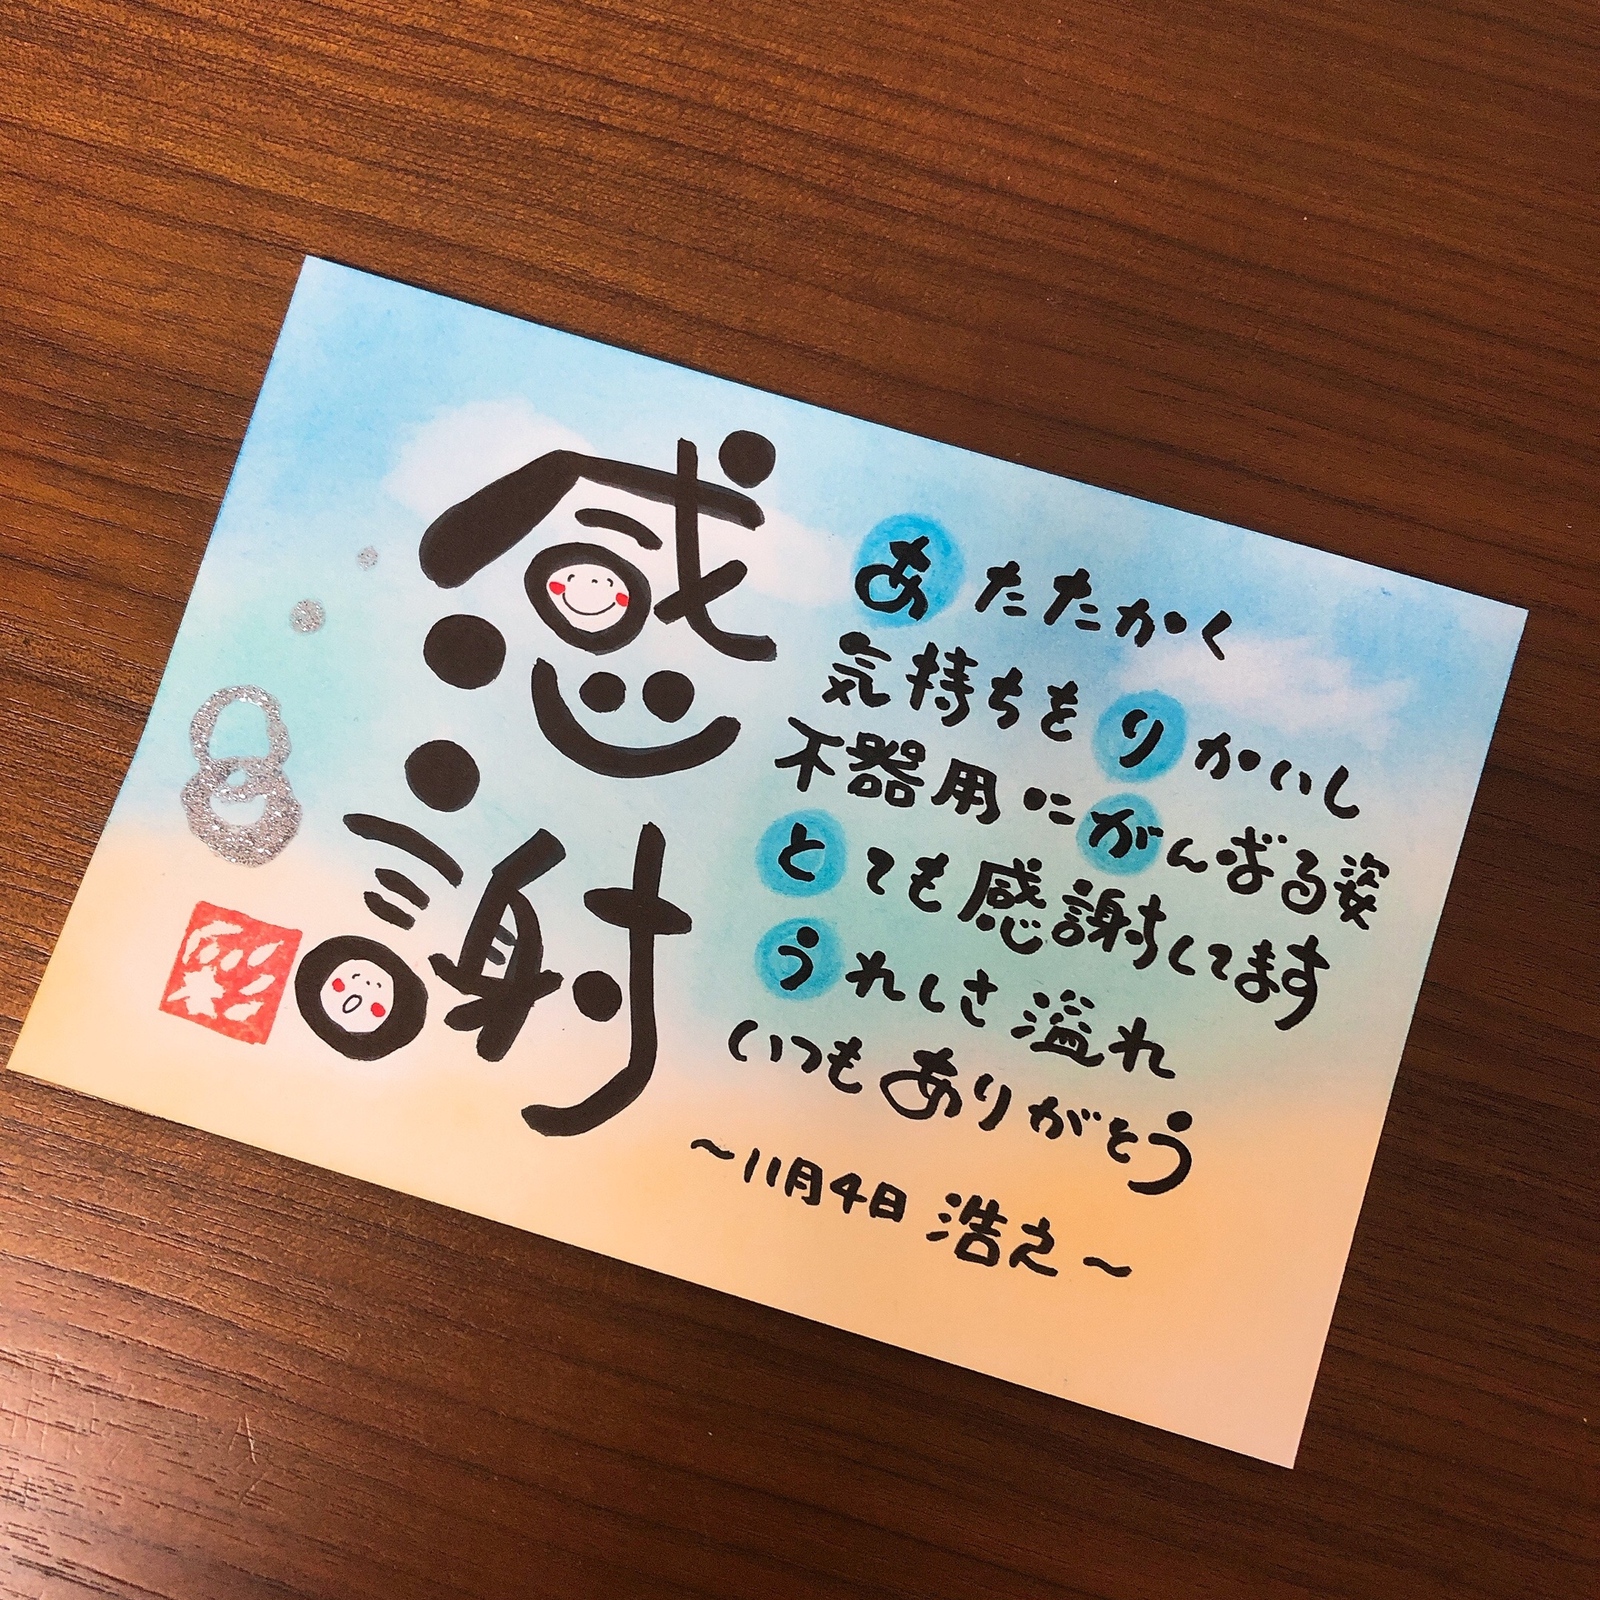 感謝
あたたかく
気持ちをりかいし
不器用にがんばる姿
とても感謝してます
うれしさ溢れ
いつもありがとう
～11月4日 浩之～
彩